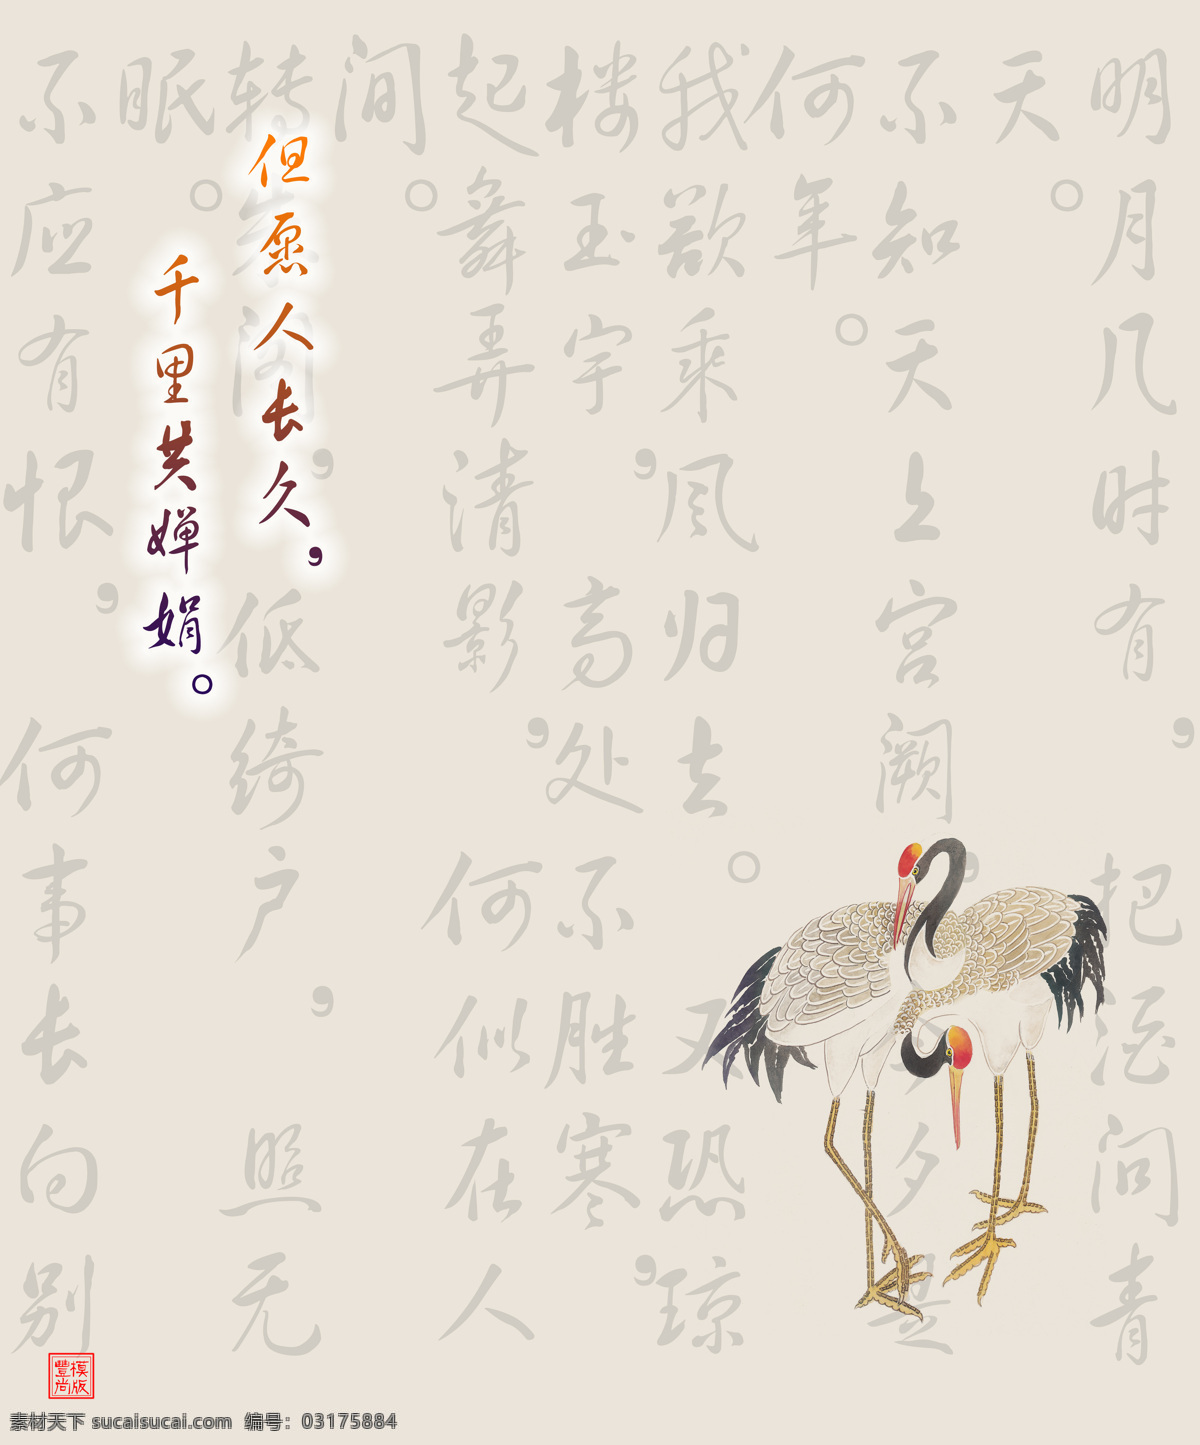 明月几时有，把酒问青
天。
不知天上宫阙，夕是
何年。
我欲乘风归去。又恐琼
楼玉宇，高处不胜寒，
起舞弄清影，何似在人
间。
转朱阁，低绮户，照无
眠。
不应有恨，何事长向别
但愿人长久，
千里共婵娟。
模版
豐尚
素材天下 sucaisucai.com 编号：03175884